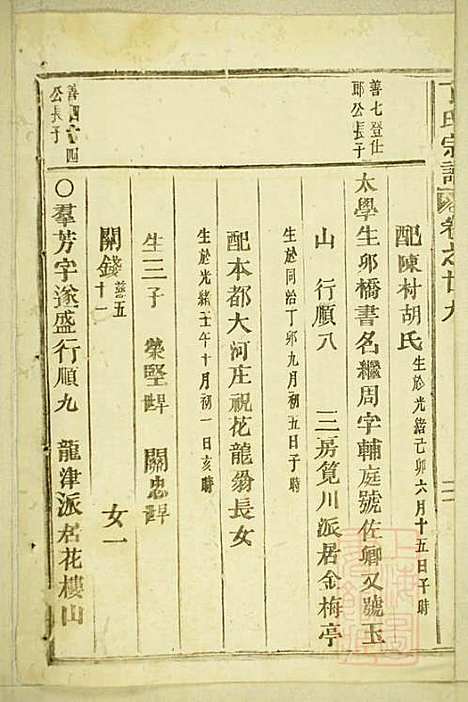 氏宗譜 卷之廿九
配陳村胡氏 生於光緒己卯六月十五日午時
善七登仕
郎公長子
太學生卯橋書名繼周字輔庭號佐卿又號玉
山 行順八 三房筧川派居金梅亭
生於同治丁卯九月初五日子時
配本都大河庄祝花龍翁長女
生於光緒壬午十月初一日亥時
生三子 榮堅 關忠
關錢 女一
善四 四
公長子
〇羣芳字遂盛行順九 龍津派居花樓山